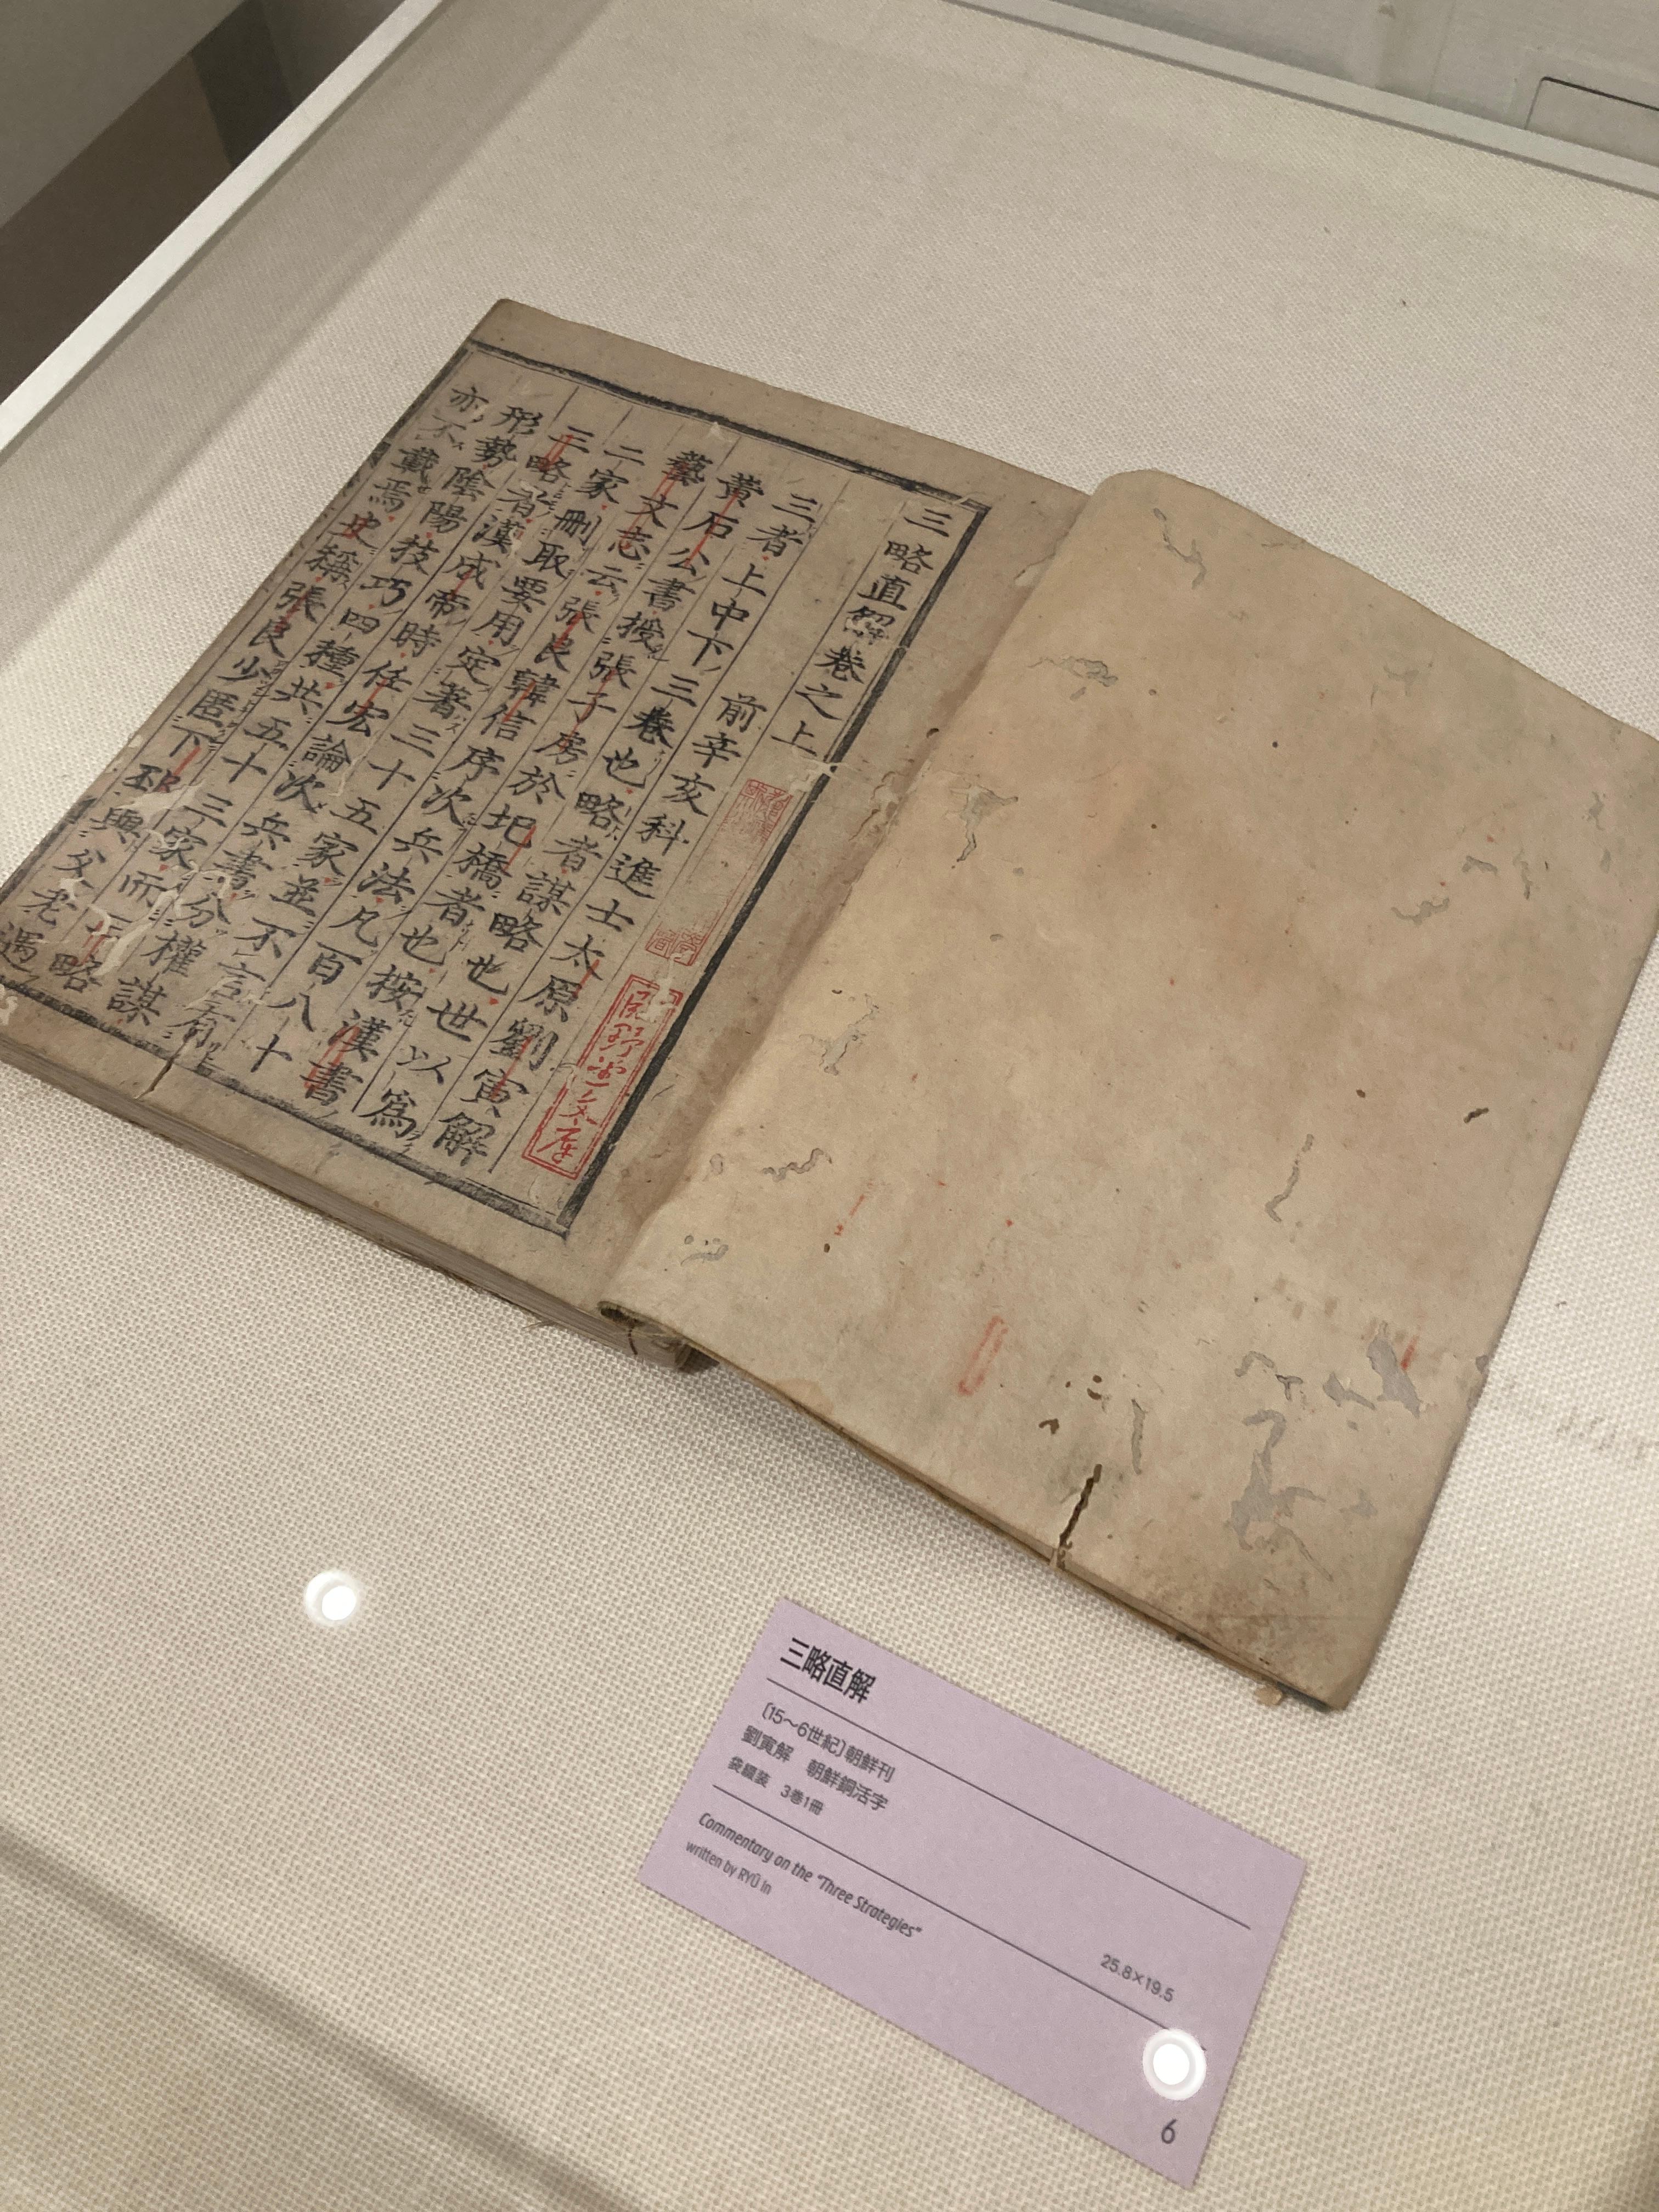 三略直解卷之上
前辛亥科進士太原劉寅解
三者上中下三卷也略者謀略也世以爲
黃石公書授張子房於圯橋者也按漢書
藝文志云張良韓信序次兵法凡百八十
二家刪取要用定著三十五家並不言有
三略者漢成帝時任宏論次兵書分權謀
形勢陰陽技巧四種共五十三家而三略
亦不載焉史稱張良少匿下邳與父老遇
三略直解
〔15〜6世紀〕朝鮮刊
劉寅解　朝鮮銅活字
袋綴装　3巻1冊
25.8×19.5
Commentary on the "Three Strategies"
written by RYŪ In
6